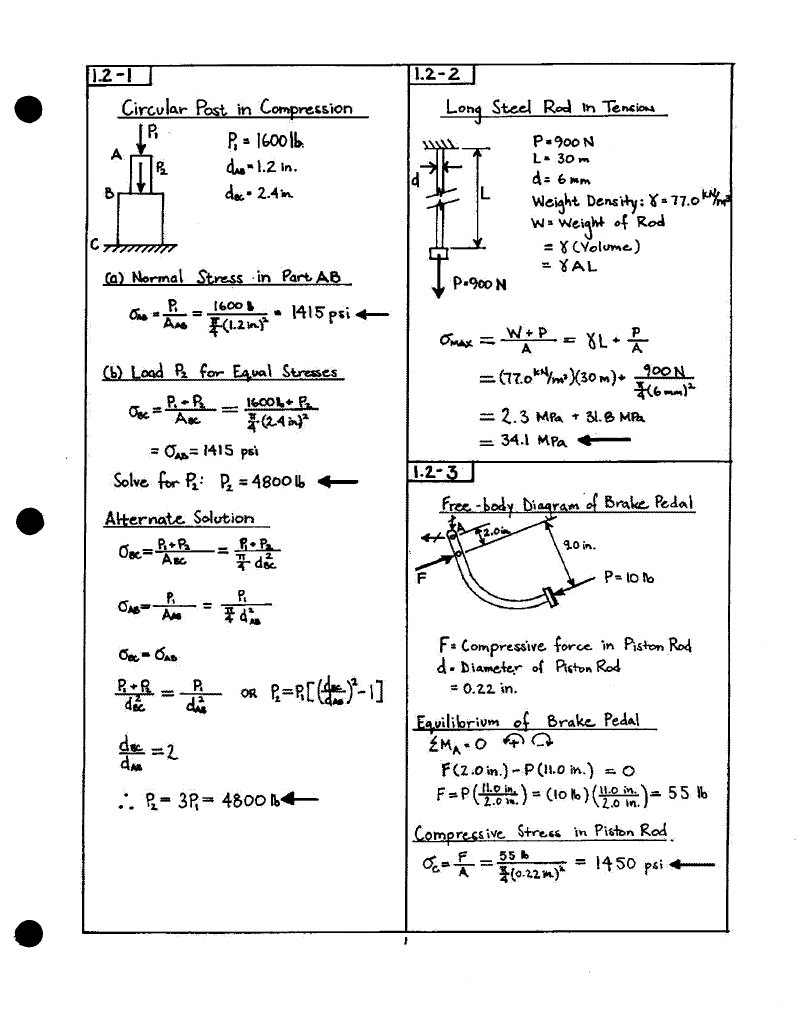 1.2-1
Circular Post in Compression
P₁
A
P₂
B
C
P₁ = 1600 lb.
d_AB = 1.2 in.
d_BC = 2.4 in.
(a) Normal Stress in Part AB
σ_AB = P₁/A_AB = 1600 lb/(π/4 (1.2 in.)²) = 1415 psi ←
(b) Load P₂ for Equal Stresses
σ_BC = (P₁ + P₂)/A_BC = (1600 lb + P₂)/(π/4 (2.4 in.)²)
= σ_AB = 1415 psi
Solve for P₂: P₂ = 4800 lb ←
Alternate Solution
σ_BC = (P₁ + P₂)/A_BC = (P₁ + P₂)/(π/4 d²_BC)
σ_AB = P₁/A_AB = P₁/(π/4 d²_AB)
σ_BC = σ_AB
(P₁ + P₂)/d²_BC = P₁/d²_AB OR P₂ = P₁[(d_BC/d_AB)² - 1]
d_BC/d_AB = 2
∴ P₂ = 3P₁ = 4800 lb ←
1.2-2
Long Steel Rod in Tension
d
L
P=900 N
P = 900 N
L = 30 m
d = 6 mm
Weight Density: γ = 77.0 kN/m³
W = Weight of Rod
= γ (Volume)
= γ A L
σ_MAX = (W + P)/A = γL + P/A
= (77.0 kN/m³)(30 m) + 900 N/(π/4 (6 mm)²)
= 2.3 MPa + 31.8 MPa
= 34.1 MPa ←
1.2-3
Free-body Diagram of Brake Pedal
A
2.0 in.
9.0 in.
F
P = 10 lb
F = Compressive force in Piston Rod
d = Diameter of Piston Rod
= 0.22 in.
Equilibrium of Brake Pedal
ΣM_A = 0 + -
F(2.0 in.) - P(11.0 in.) = 0
F = P(11.0 in./2.0 in.) = (10 lb)(11.0 in./2.0 in.) = 55 lb
Compressive Stress in Piston Rod
σ_C = F/A = 55 lb/(π/4 (0.22 in.)²) = 1450 psi ←
1